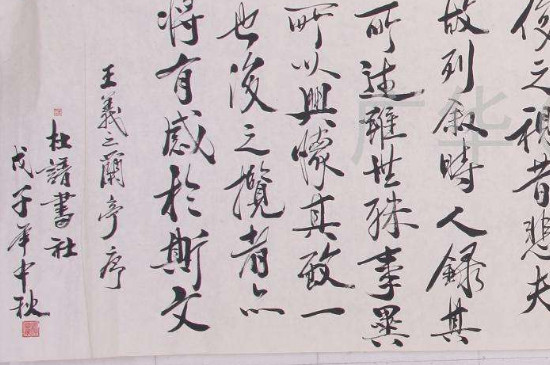 後之視昔悲夫
故列敘時人錄其
所述雖世殊事異
所以興懷其致一
也後之攬者亦
將有感於斯文
王羲之蘭亭序
杜請書社
戊子年中秋
广华